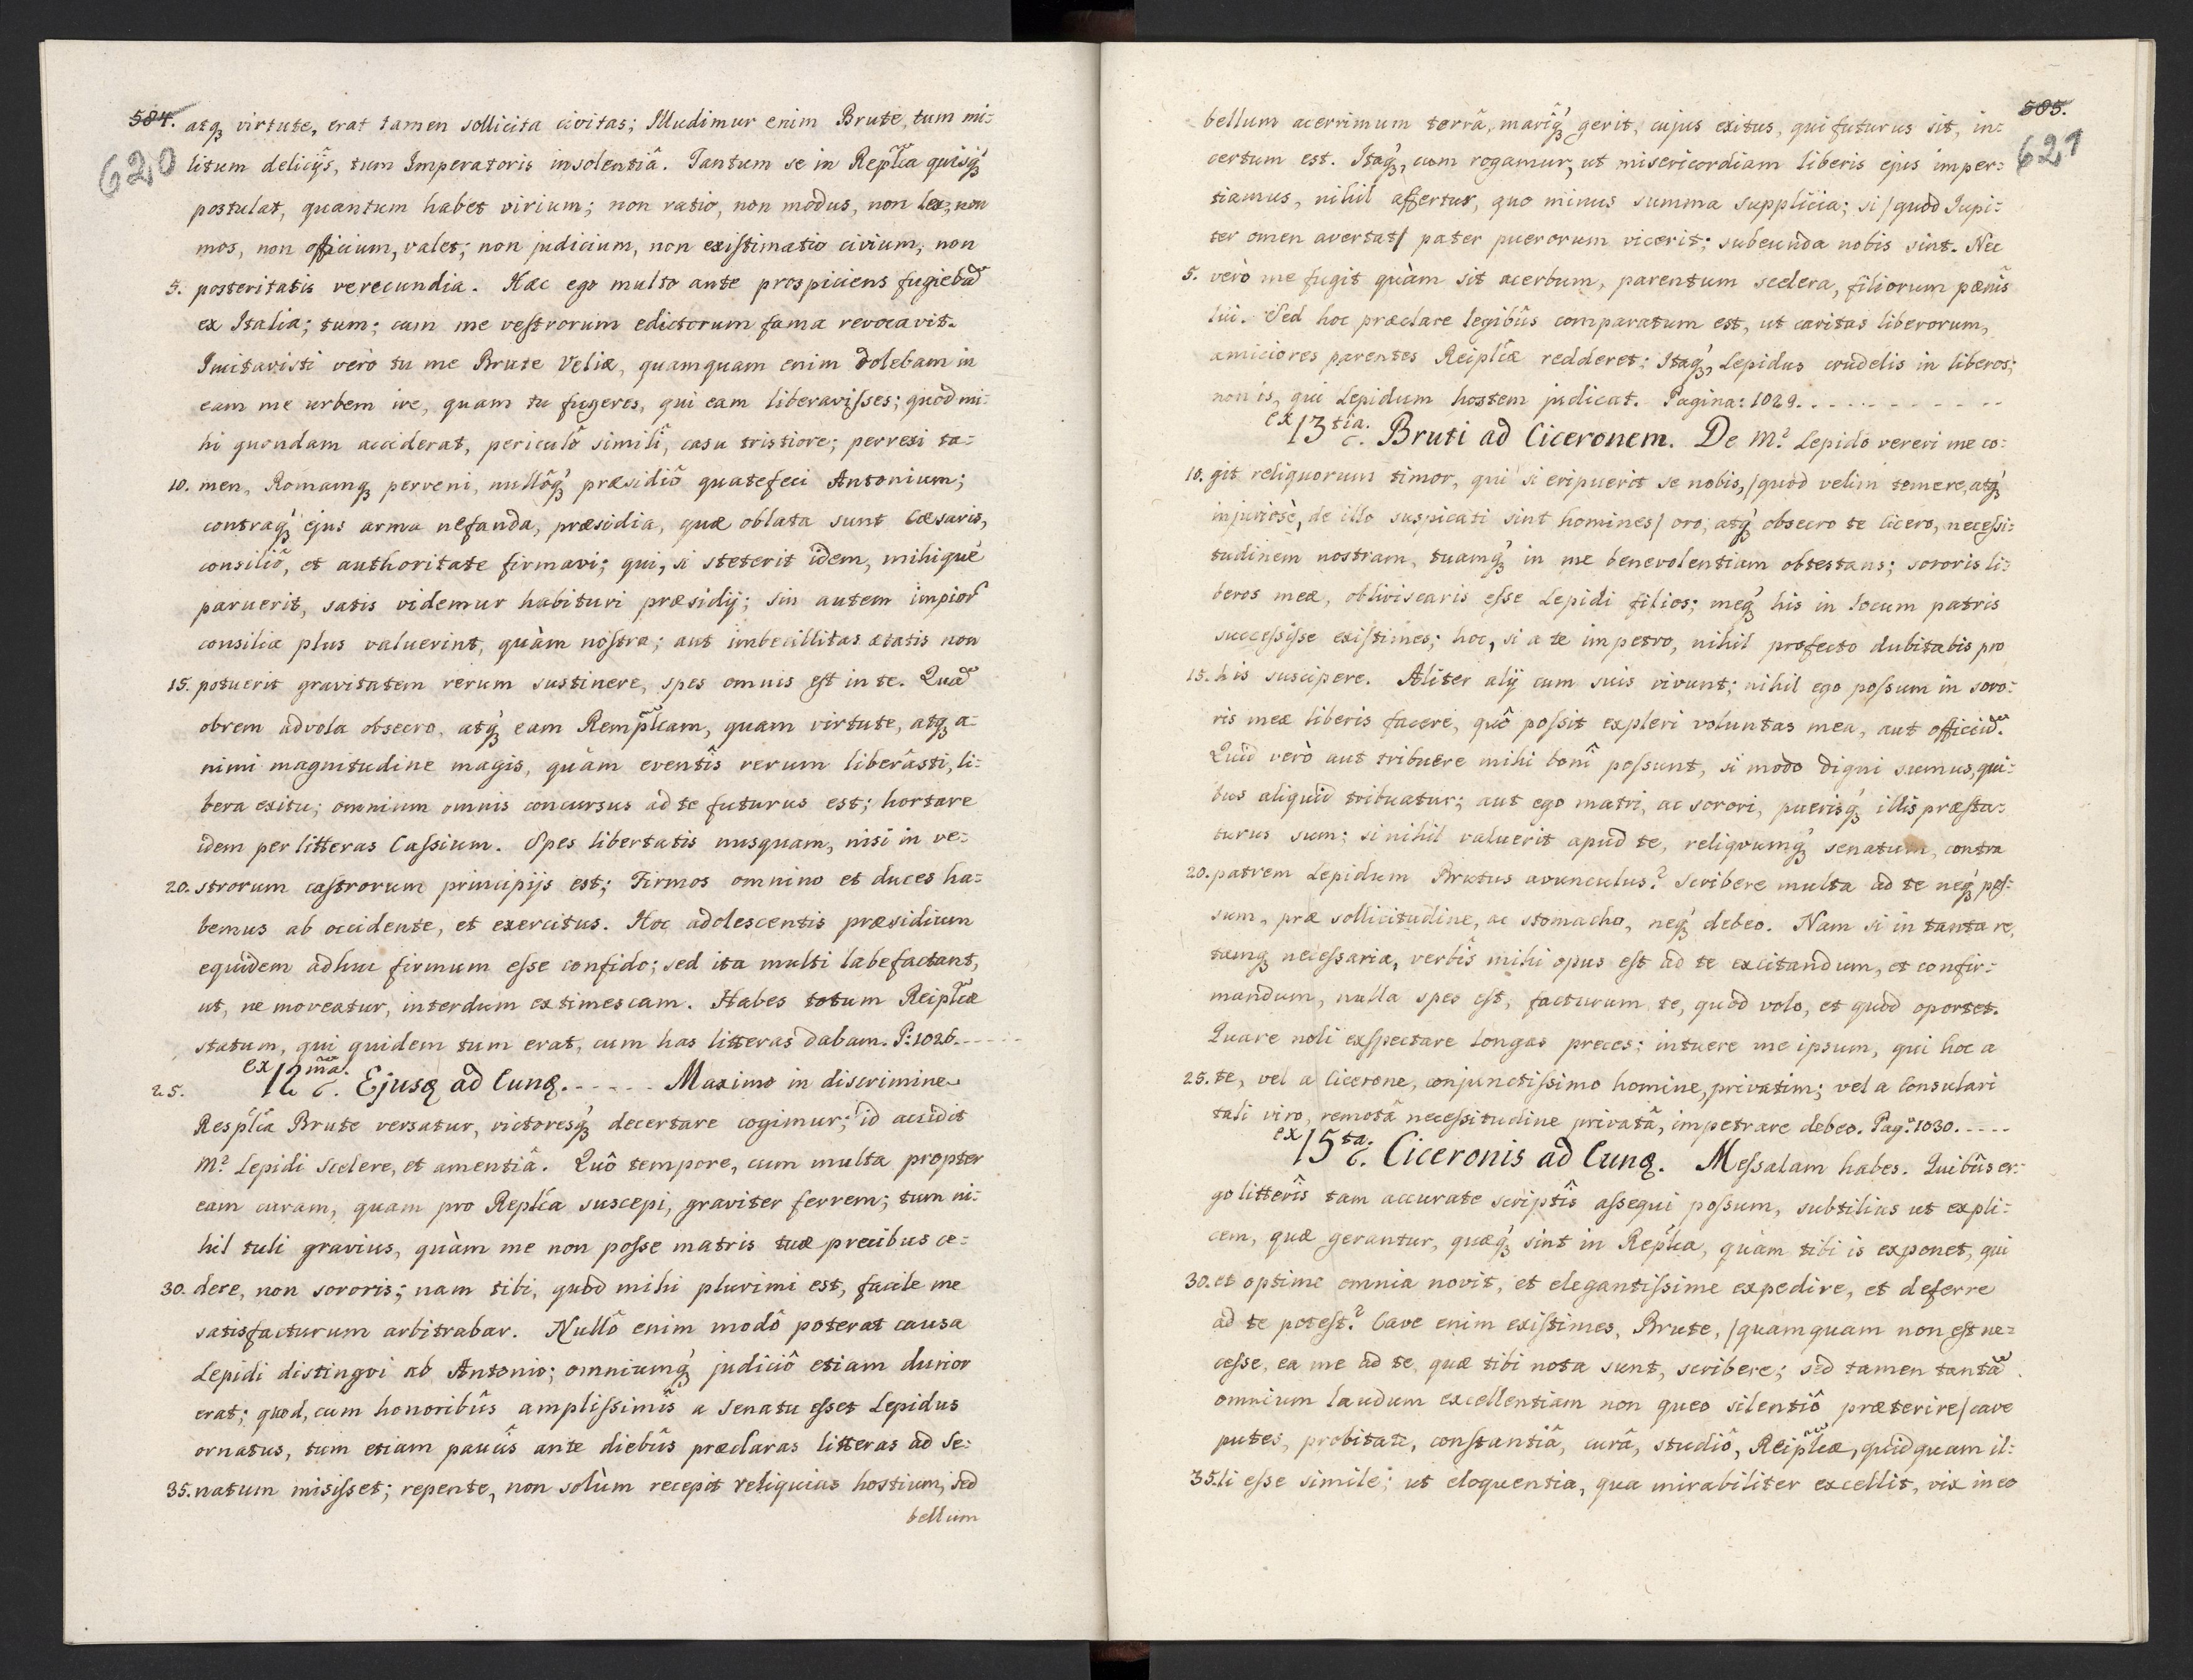 584. atq₃ virtute, erat tamen sollicita civitas; Illudimur enim Brute, tum mi:
620 litum delicijs, tum Imperatoris insolentiâ. Tantum se in Replca quisq₃
postulat, quantum habet virium; non ratio, non modus, non lex, non
mos, non officium, valet; non judicium, non existimatio civium, non
5. posteritatis verecundia. Hæc ego multo ante prospiciens fugiebam̃
ex Italia; tum; cum me vestrorum edictorum fama revocavit.
Incitavisti verò tu me Brute Veliæ, quamquam enim dolebam in
eam me urbem ire, quam tu fugeres, qui eam liberavisses; quod mi:
hi quondam acciderat, periculô simili, casu tristiore; perrexi ta:
10. men, Romamq₃ perveni, nullôq₃ præsidiô quatefeci Antonium;
contraq₃ ejus arma nefanda, præsidia, quæ oblata sunt Cæsaris,
consiliô, et authoritate firmavi; qui, si steterit idem, mihique
paruerit, satis videmur habituri præsidij; sin autem impior̃
consilia plus valuerint, quàm nostra; aut imbecillitas ætatis non
15. potuerit gravitatem rerum sustinere, spes omnis est in te. Quam̃
obrem advola obsecro, atq₃ eam Remplcam, quam virtute, atq₃ a:
nimi magnitudine magis, quàm eventîs rerum liberâsti, li:
bera exitu; omnium omnis concursus ad te futurus est; hortare
idem per litteras Cassium. Spes libertatis nusquam, nisi in ve:
20. strorum castrorum principijs est; Firmos omnino et duces ha:
bemus ab occidente, et exercitus. Hoc adolescentis præsidium
equidem adhuc firmum esse confido; sed ita multi labefactant,
ut, ne moveatur, interdum extimescam. Habes totum Reiplcæ
statum, qui quidem tum erat, cum has litteras dabam. P: 1026. - - - - -
25. ex 12ma. Ejusq ad Cunq. - - - - - Maximo in discrimine
Resplca Brute versatur, victoresq₃ decertare cogimur; id accidit
M? Lepidi scelere, et amentiâ. Quô tempore, cum multa propter
eam curam, quam pro Replca suscepi, graviter ferrem; tum ni:
hil tuli gravius, quàm me non posse matris tuæ precibus ce:
30. dere, non sororis; nam tibi, quòd mihi plurimi est, facile me
satisfacturum arbitrabar. Nullô enim modô poterat causa
Lepidi distingvi ab Antonio; omniumq₃ judiciô etiam durior
erat; quod, cum honoribûs amplissimîs a Senatu esset Lepidus
ornatus, tum etiam paucîs ante diebûs præclaras litteras ad Se:
35. natum misisset; repente, non solùm recepit reliquias hostium, sed
bellum
585.
621
bellum acerrimum terrâ, mariq₃ gerit, cujus exitus, qui futurus sit, in:
certum est. Itaq₃, cum rogamur, ut misericordiam liberis ejus imper:
tiamus, nihil affertur, quo minus summa supplicia; si /quod Iupi:
ter omen avertat/ pater puerorum vicerit; subeunda nobis sint. Nec
5. verò me fugit quàm sit acerbum, parentum scelera, filiorum pœnîs
lui. Sed hoc præclare legibûs comparatum est, ut caritas liberorum,
amiciores parentes Reiplcæ redderet: Itaq₃, Lepidus crudelis in liberos;
non is, qui Lepidum hostem judicat. Pagina: 1029. - - - - - - - - -
ex 13tia. Bruti ad Ciceronem. De M? Lepido vereri me co:
10. git reliquorum timor, qui si eripuerit se nobis, /quòd velim temere, atq₃
injuriosè, de illo suspicati sint homines/ oro, atq₃ obsecro te Cicero, necessi:
tudinem nostram, tuamq₃ in me benevolentiam obtestans; sororis li:
beros meæ, obliviscaris esse Lepidi filios; meq₃ his in locum patris
successisse existimes; hoc, si a te impetro, nihil profecto dubitabis pro
15. his suscipere. Aliter alij cum suis vivunt; nihil ego possum in soro:
ris meæ liberis facere, quô possit expleri voluntas mea, aut officium̃.
Quid verò aut tribuere mihi boni possunt, si modo digni sumus, qui:
bus aliquid tribuatur; aut ego matri, ac sorori, puerisq₃ illis præsta:
turus sum; si nihil valuerit apud te, reliquumq₃ senatum, contra
20. patrem Lepidum Brutus avunculus? scribere multa ad te neq₃ pos:
sum, præ sollicitudine, ac stomacho, neq₃ debeo. Nam si in tanta re,
tamq₃ necessaria, verbîs mihi opus est ad te excitandum, et confir:
mandum, nulla spes est, facturum te, quòd volo, et quòd oportet.
Quare noli exspectare longas preces: intuere me ipsum, qui hoc a
25. te, vel a Cicerone, conjunctissimo homine, privatim; vel a Consulari
tali viro, remotâ necessitudine privatâ, impetrare debeo. Pag: 1030. - - - -
ex 15ta. Ciceronis ad Cunq. Messalam habes. Quibûs er:
go litterîs tam accurate scriptîs assequi possum, subtilius ut expli:
cem, quæ gerantur, quæq₃ sint in Replca, quàm tibi is exponet, qui
30. et optime omnia novit, et elegantissime expedire, et deferre
ad te potest? Cave enim existimes, Brute, /quamquam non est ne:
cesse, ea me ad te, quæ tibi nota sunt, scribere; sed tamen tantam̃
omnium laudum excellentiam non queo silentiô præterire/ cave
putes, probitate, constantiâ, curâ, studiô, Reiplcæ, quidquam il:
35. li esse simile; ut eloquentia, qua mirabiliter excellit, vix in eo